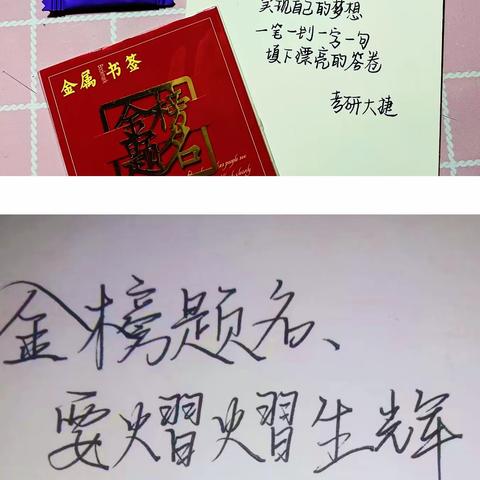 实现自己的梦想
一笔一划一字一句
填下漂亮的答卷
考研大捷
金属书签
金榜
题名
as people see
金榜题名、
要熠熠生辉